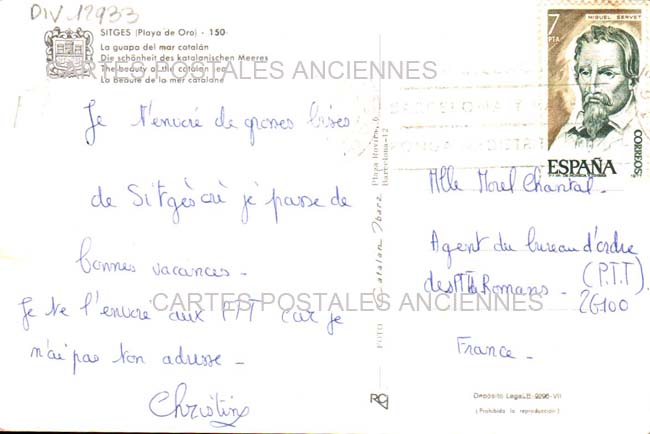 DIV.12933
SITGES (Playa de Oro) - 150
La guapa del mar catalán
Die schönheit des katalanischen Meeres
The beauty of the catalan sea
La beauté de la mer catalane
CARTES POSTALES ANCIENNES
Je t'envoie de grosses bises
de Sitgès où je passe de
bonnes vacances.
Je te l'envoie aux PTT car je
n'ai pas ton adresse.
Christine
CARTES POSTALES ANCIENNES
FOTO Catalan Ibarz Plaza Rovira, 6
Barcelona-12
MIGUEL SERVET
7
PTA
CORREOS
ESPAÑA
Mlle Morel Chantal.
Agent du bureau d'ordre
des Romans. (P.T.T)
26100
France.
Depósito Legal B-9296-VII
(Prohibida la reproducción)